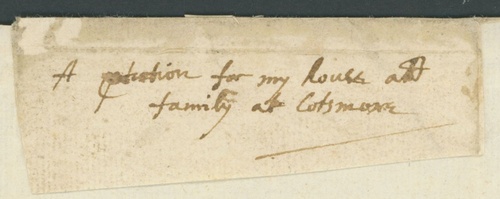 A petition for my house and
family at Cotsmore